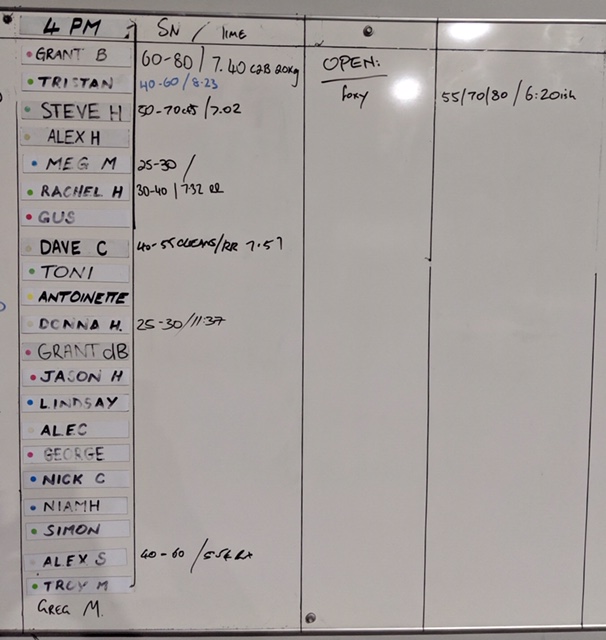 4 PM SN / TIME
GRANT B 60-80 / 7.40 C2B 20kg OPEN:
TRISTAN 40-60 / 8:23 foxy 55/70/80 / 6:20ish
STEVE H 50-70 / 7.02
ALEX H
MEG M 25-30 /
RACHEL H 30-40 / 7:32
GUS
DAVE C 40-55 CLEANS/RR 7.57
TONI
ANTOINETTE
DONNA H. 25-30 / 11:37
GRANT dB
JASON H
LINDSAY
ALEC
GEORGE
NICK C
NIAMH
SIMON
ALEX S 40-60 /
TROY M
GREG M.